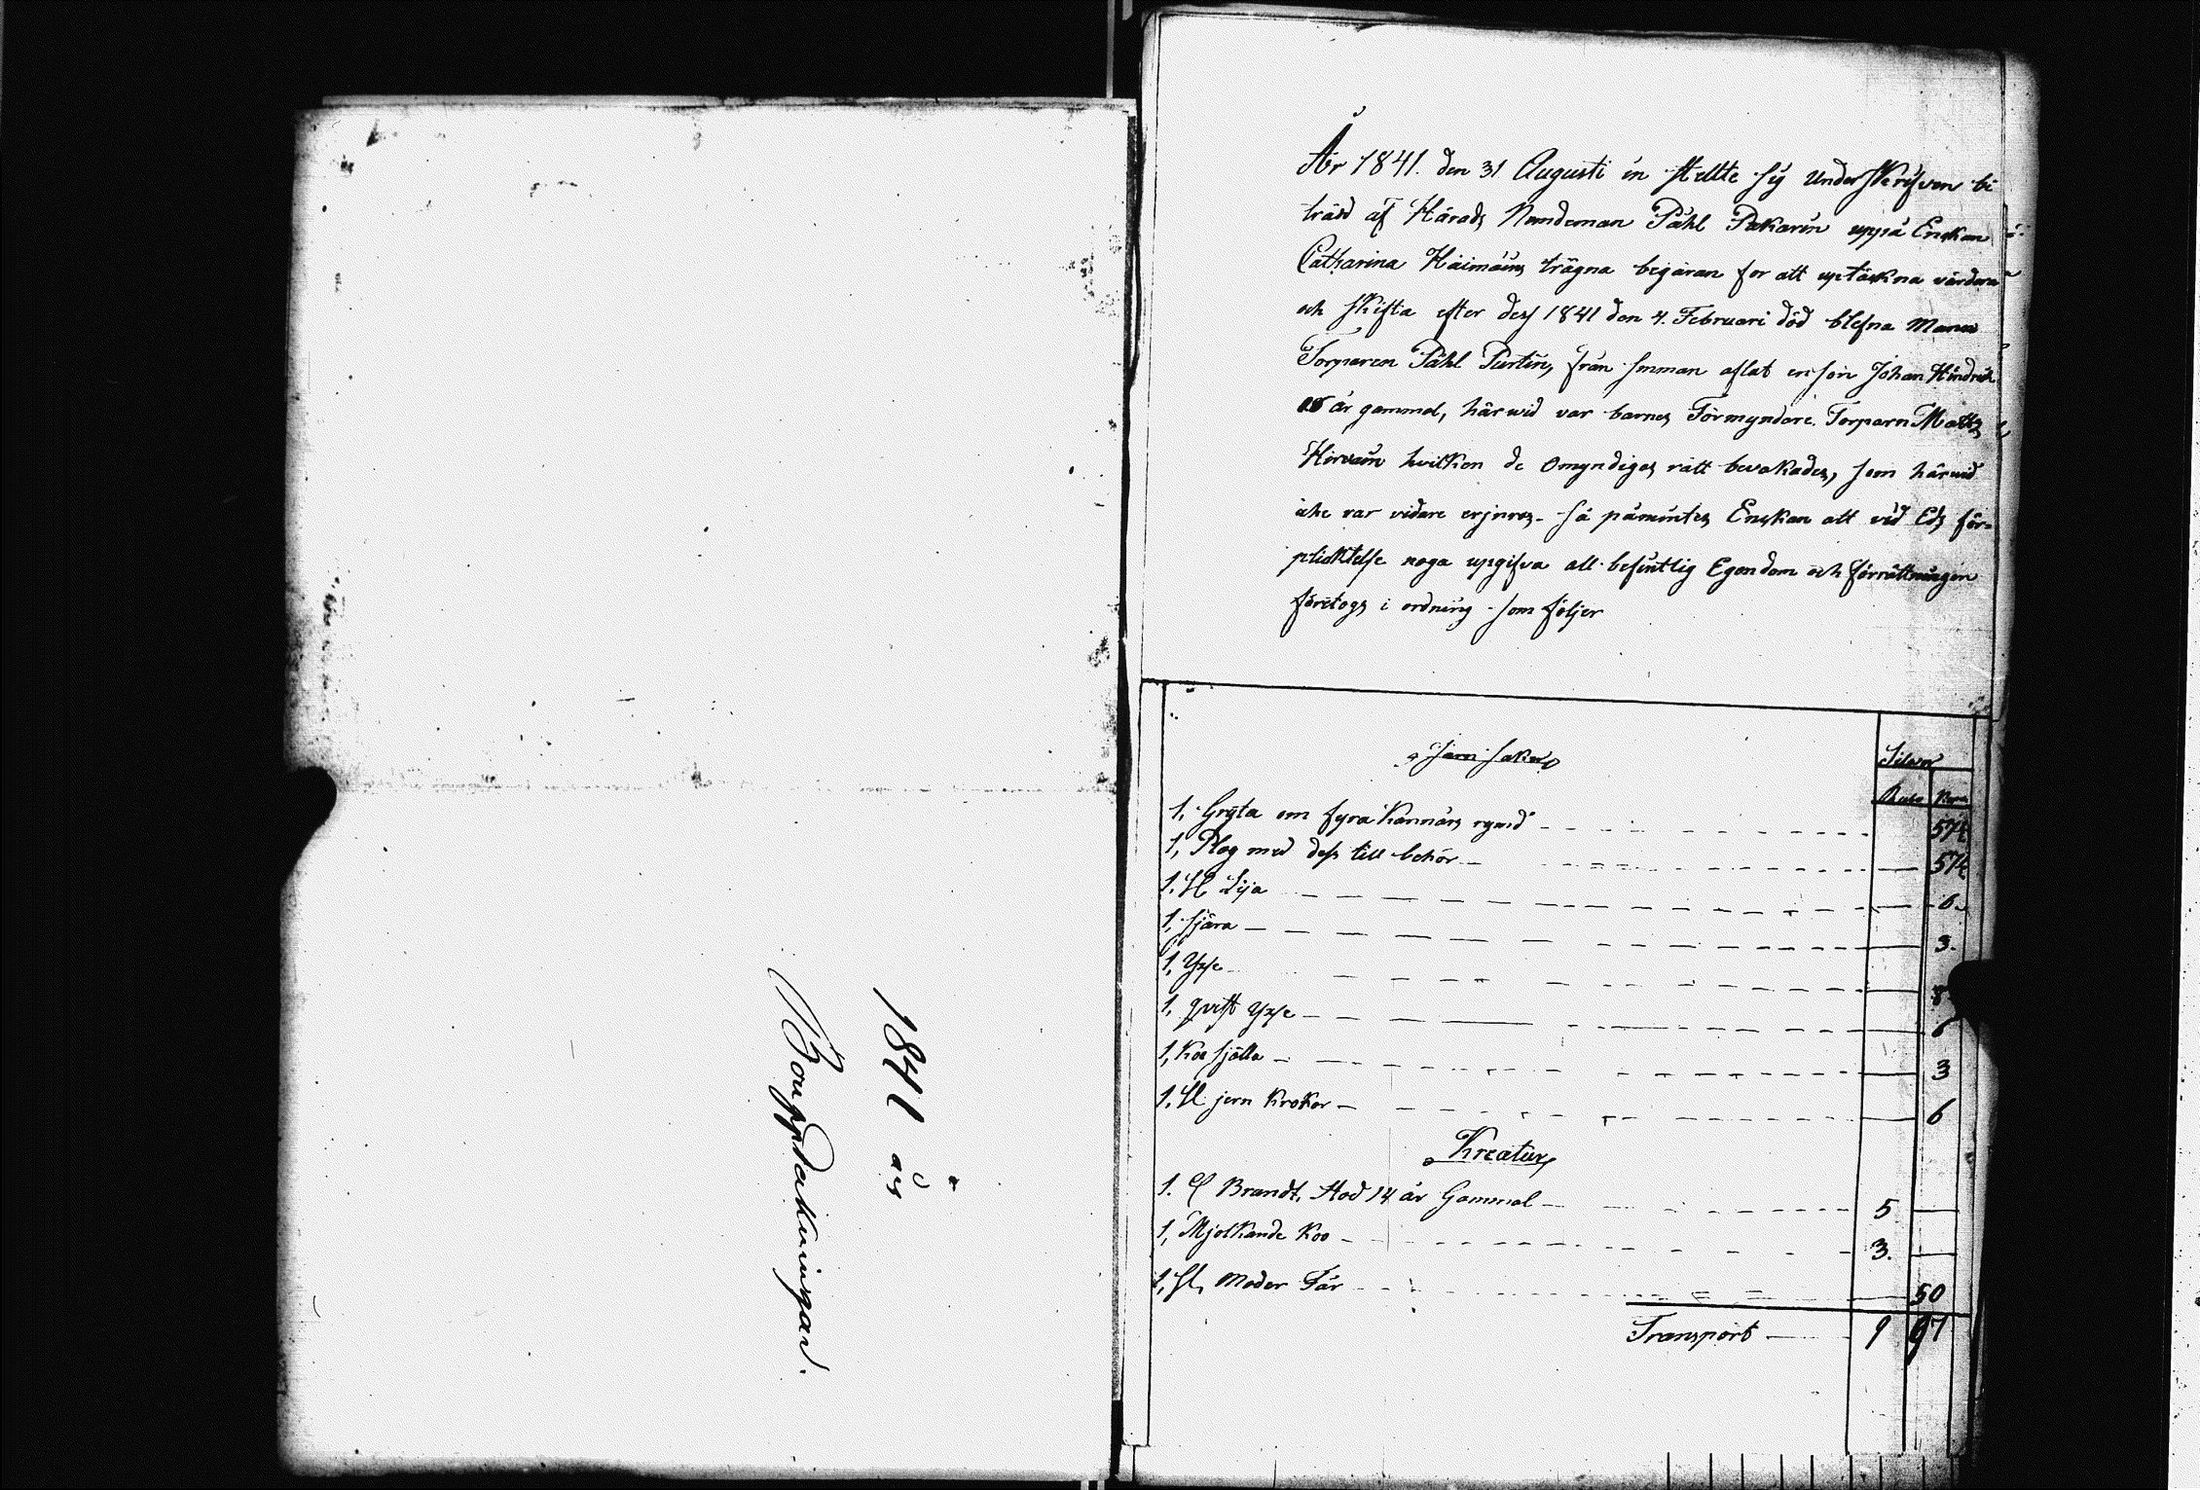 1841 års
Bouppteckningar.
År 1841. den 31 Augusti in stellte sig Underskrifven bi
träd af Härads Nemdeman Påhl Pakarin uppå Enckan
Catharina Häimäins trägna begäran for att upptäckna värdera
och skifta efter dess 1841 den 4. Februari död blefna Mann
Torparen Påhl Purtin, från hmman aflat en son Johan Hindrich
år gammal, härwid var barnes Förmyndare Torparn Matts
Hirvoin hvilken de Omyndiges rätt bevakades, som härwid
icke var vidare erjnres. så påmintes Enckan att vid Eds för-
pliktelse noga uppgifva all befintlig Egendom och förrättningen
företogs i ordning som följer
Järn saker
Silver
Rubr Kopr
1, Gryta om fyra Kannårs rymd 57½
1, Plog med dess till behör 57½
1. St Lija 6.
1, sjära 3.
1, Yxse 8
1, qvist Yxse 6
1, Koe själla 3
1. St jern Krokor 6
Kreatur
1. Brandt. Stod 14 år Gammal 5
1, Mjolkande Koo 3.
1, St, Moder Får 50
Transport 9 97